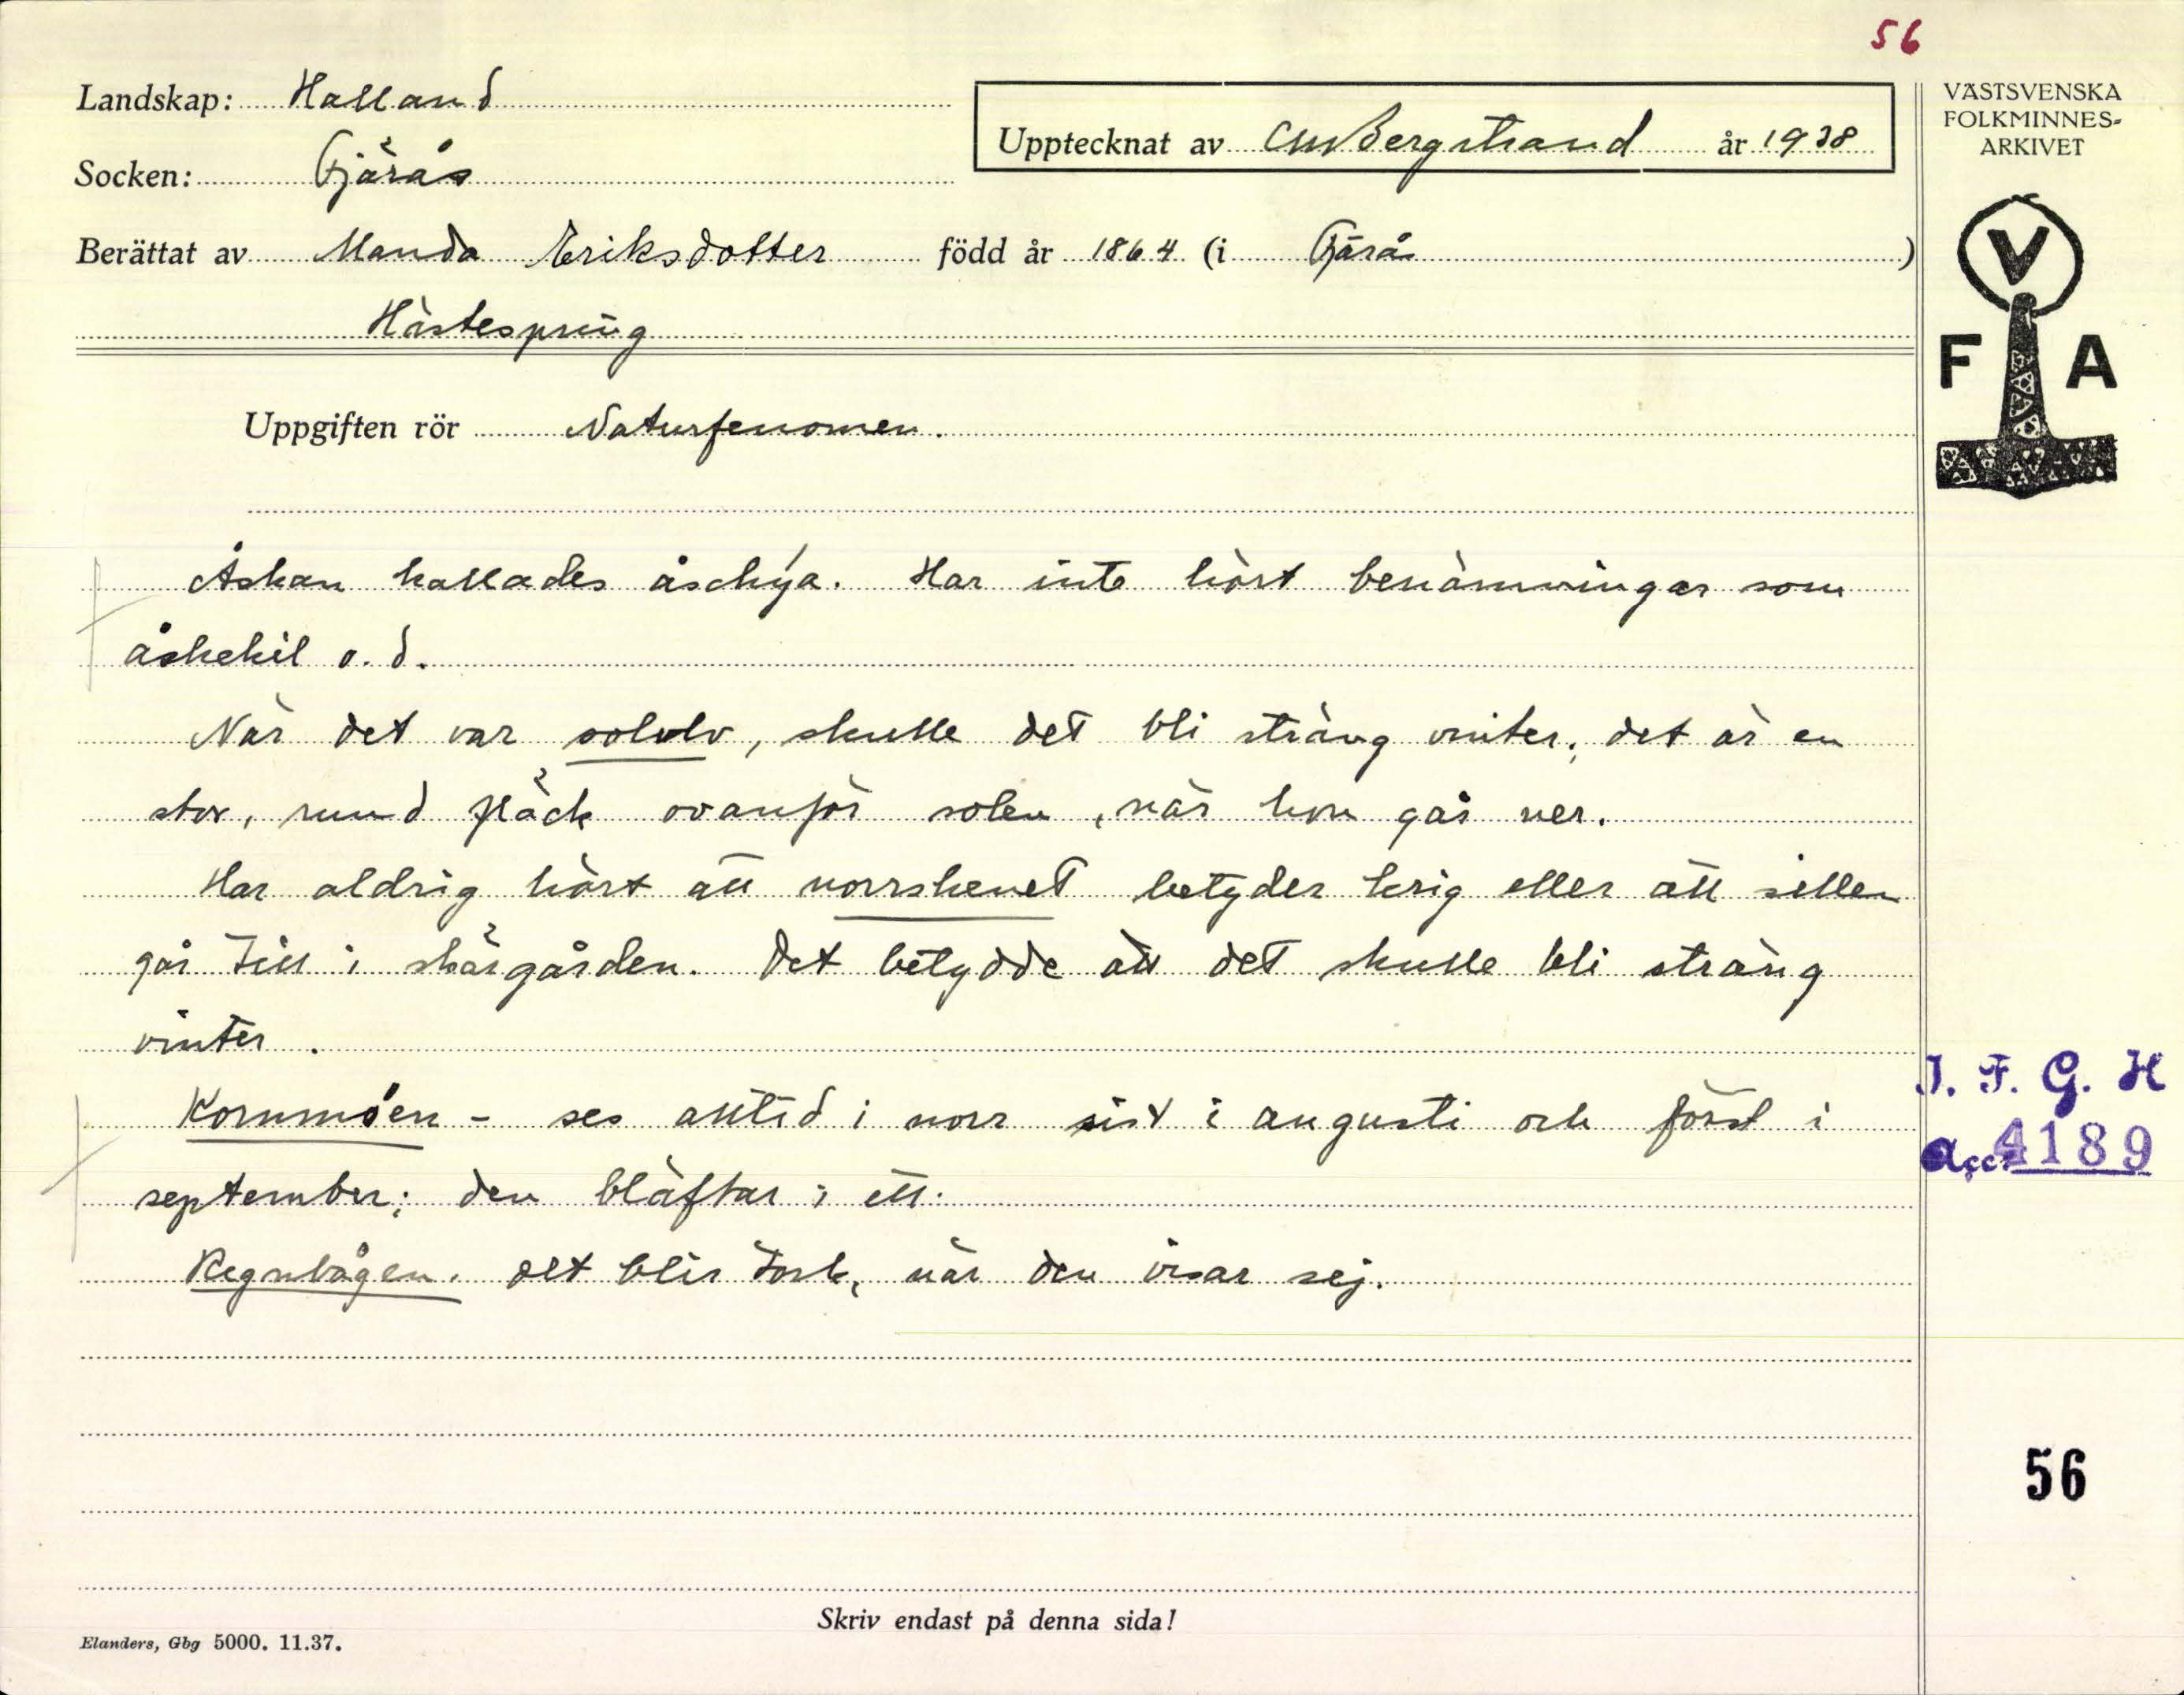 56
Landskap: Halland
Upptecknat av CMBergstrand år 1938
VÄSTSVENSKA
FOLKMINNES-
ARKIVET
Socken: Fjärås
Berättat av Manda Eriksdotter född år 1864 (i Fjärås)
Hästespring
V
F A
Uppgiften rör Naturfenomen.
Åskan kallades åschýa. Har inte hört benämningar som
åskekil o. d.
När det var solulv, skulle det bli sträng vinter; det är en
stor, rund fläck ovanför solen, när hon går ner.
Har aldrig hört att norrskenet betyder krig eller att sillen
går till i skärgården. Det betydde att det skulle bli sträng
vinter.
Kornmoen - ses alltid i norr sist i augusti och först i
september; den bläftar i ett.
Regnbågen. det blir tork, när den visar sej.
I. F. G. H
Acc. 4189
56
Skriv endast på denna sida!
Elanders, Gbg 5000. 11.37.